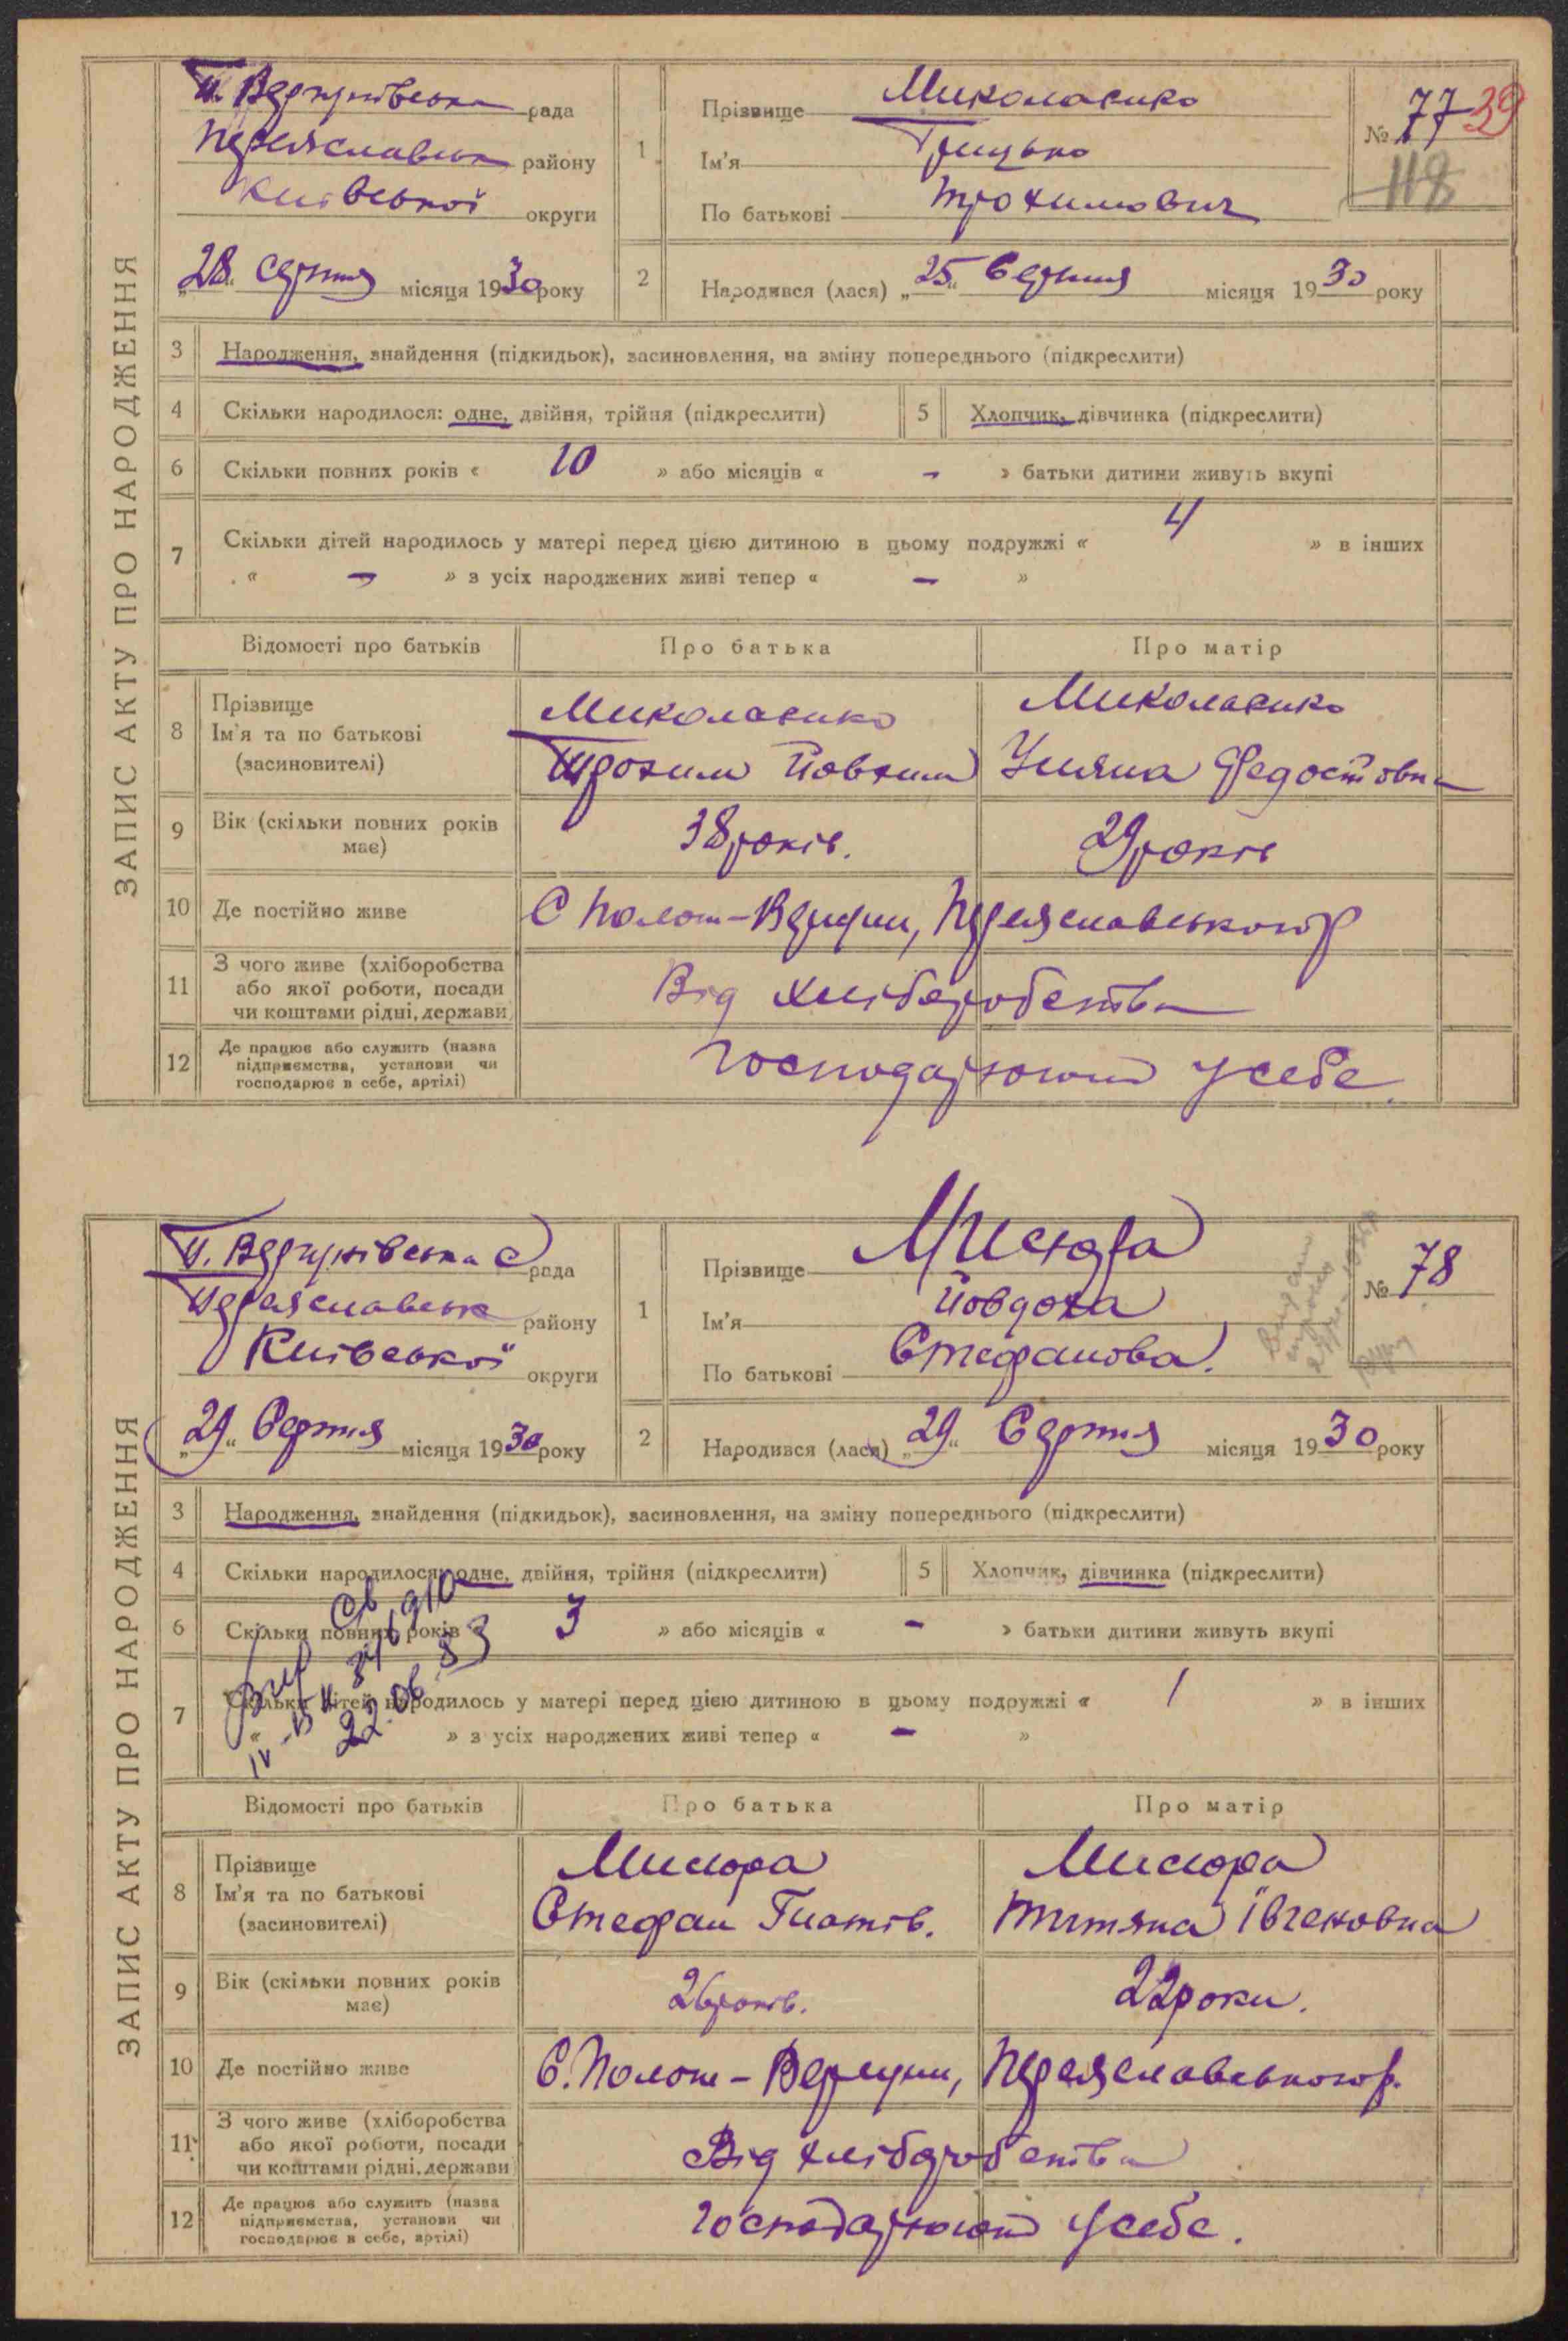 ЗАПИС АКТУ ПРО НАРОДЖЕННЯ
П. Вергунівська рада
Переяславськ району
Київської округи
„28“ серпня місяця 1930 року
1 Прізвище Миколаєнко
Ім'я Грицько
По батькові Трохимович
№ 77 39
118
2 Народився (лася) „25“ Серпня місяця 1930 року
3 Народження, знайдення (підкидьок), засиновлення, на зміну попереднього (підкреслити)
4 Скільки народилося: одне, двійня, трійня (підкреслити) 5 Хлопчик, дівчинка (підкреслити)
6 Скільки повних років « 10 » або місяців « - » батьки дитини живуть вкупі
7 Скільки дітей народилось у матері перед цією дитиною в цьому подружжі « 4 » в інших
« - » з усіх народжених живі тепер « - »
Відомості про батьків Про батька Про матір
8 Прізвище
Ім'я та по батькові
(засиновителі)
Миколаєнко
Трохим Йовхим
Миколаєнко
Уляна Федостовн
9 Вік (скільки повних років має) 38 років. 29 років
10 Де постійно живе С Полож-Вергуни, Переяславського р
11 З чого живе (хліборобства
або якої роботи, посади
чи коштами рідні, держави)
Від хліборобства
12 Де працює або служить (назва
підприємства, установи чи
господарює в себе, артілі)
господарюють у себе.
ЗАПИС АКТУ ПРО НАРОДЖЕННЯ
П. Вергунівська с рада
Переяславськ району
Київської округи
„29“ Серпня місяця 1930 року
1 Прізвище Мисюра
Ім'я Йовдоха
По батькові Стефанова.
№ 78
2 Народився (лася) „29“ Серпня місяця 1930 року
3 Народження, знайдення (підкидьок), засиновлення, на зміну попереднього (підкреслити)
4 Скільки народилося: одне, двійня, трійня (підкреслити) 5 Хлопчик, дівчинка (підкреслити)
6 Скільки повних років « 3 » або місяців « - » батьки дитини живуть вкупі
7 Скільки дітей народилось у матері перед цією дитиною в цьому подружжі « 1 » в інших
« » з усіх народжених живі тепер « - »
22.06.83
Відомості про батьків Про батька Про матір
8 Прізвище
Ім'я та по батькові
(засиновителі)
Мисюра
Стефан Гнатів.
Мисюра
Титяна Івгеновна
9 Вік (скільки повних років має) 26 років. 22 роки.
10 Де постійно живе С. Полож-Вергуни, Переяславського р.
11 З чого живе (хліборобства
або якої роботи, посади
чи коштами рідні, держави)
Від хліборобства
12 Де працює або служить (назва
підприємства, установи чи
господарює в себе, артілі)
господарюють у себе.